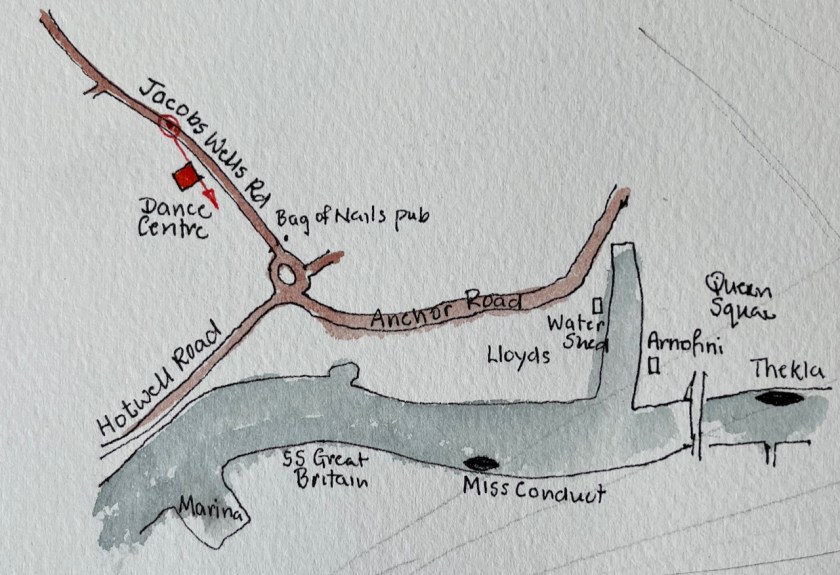 Jacobs Wells Rd
Dance
Centre
Bag of Nails pub
Anchor Road
Hotwell Road
Water
Shed
Lloyds
Arnofini
Queen
Squae
Thekla
SS Great
Britain
Miss Conduct
Marina